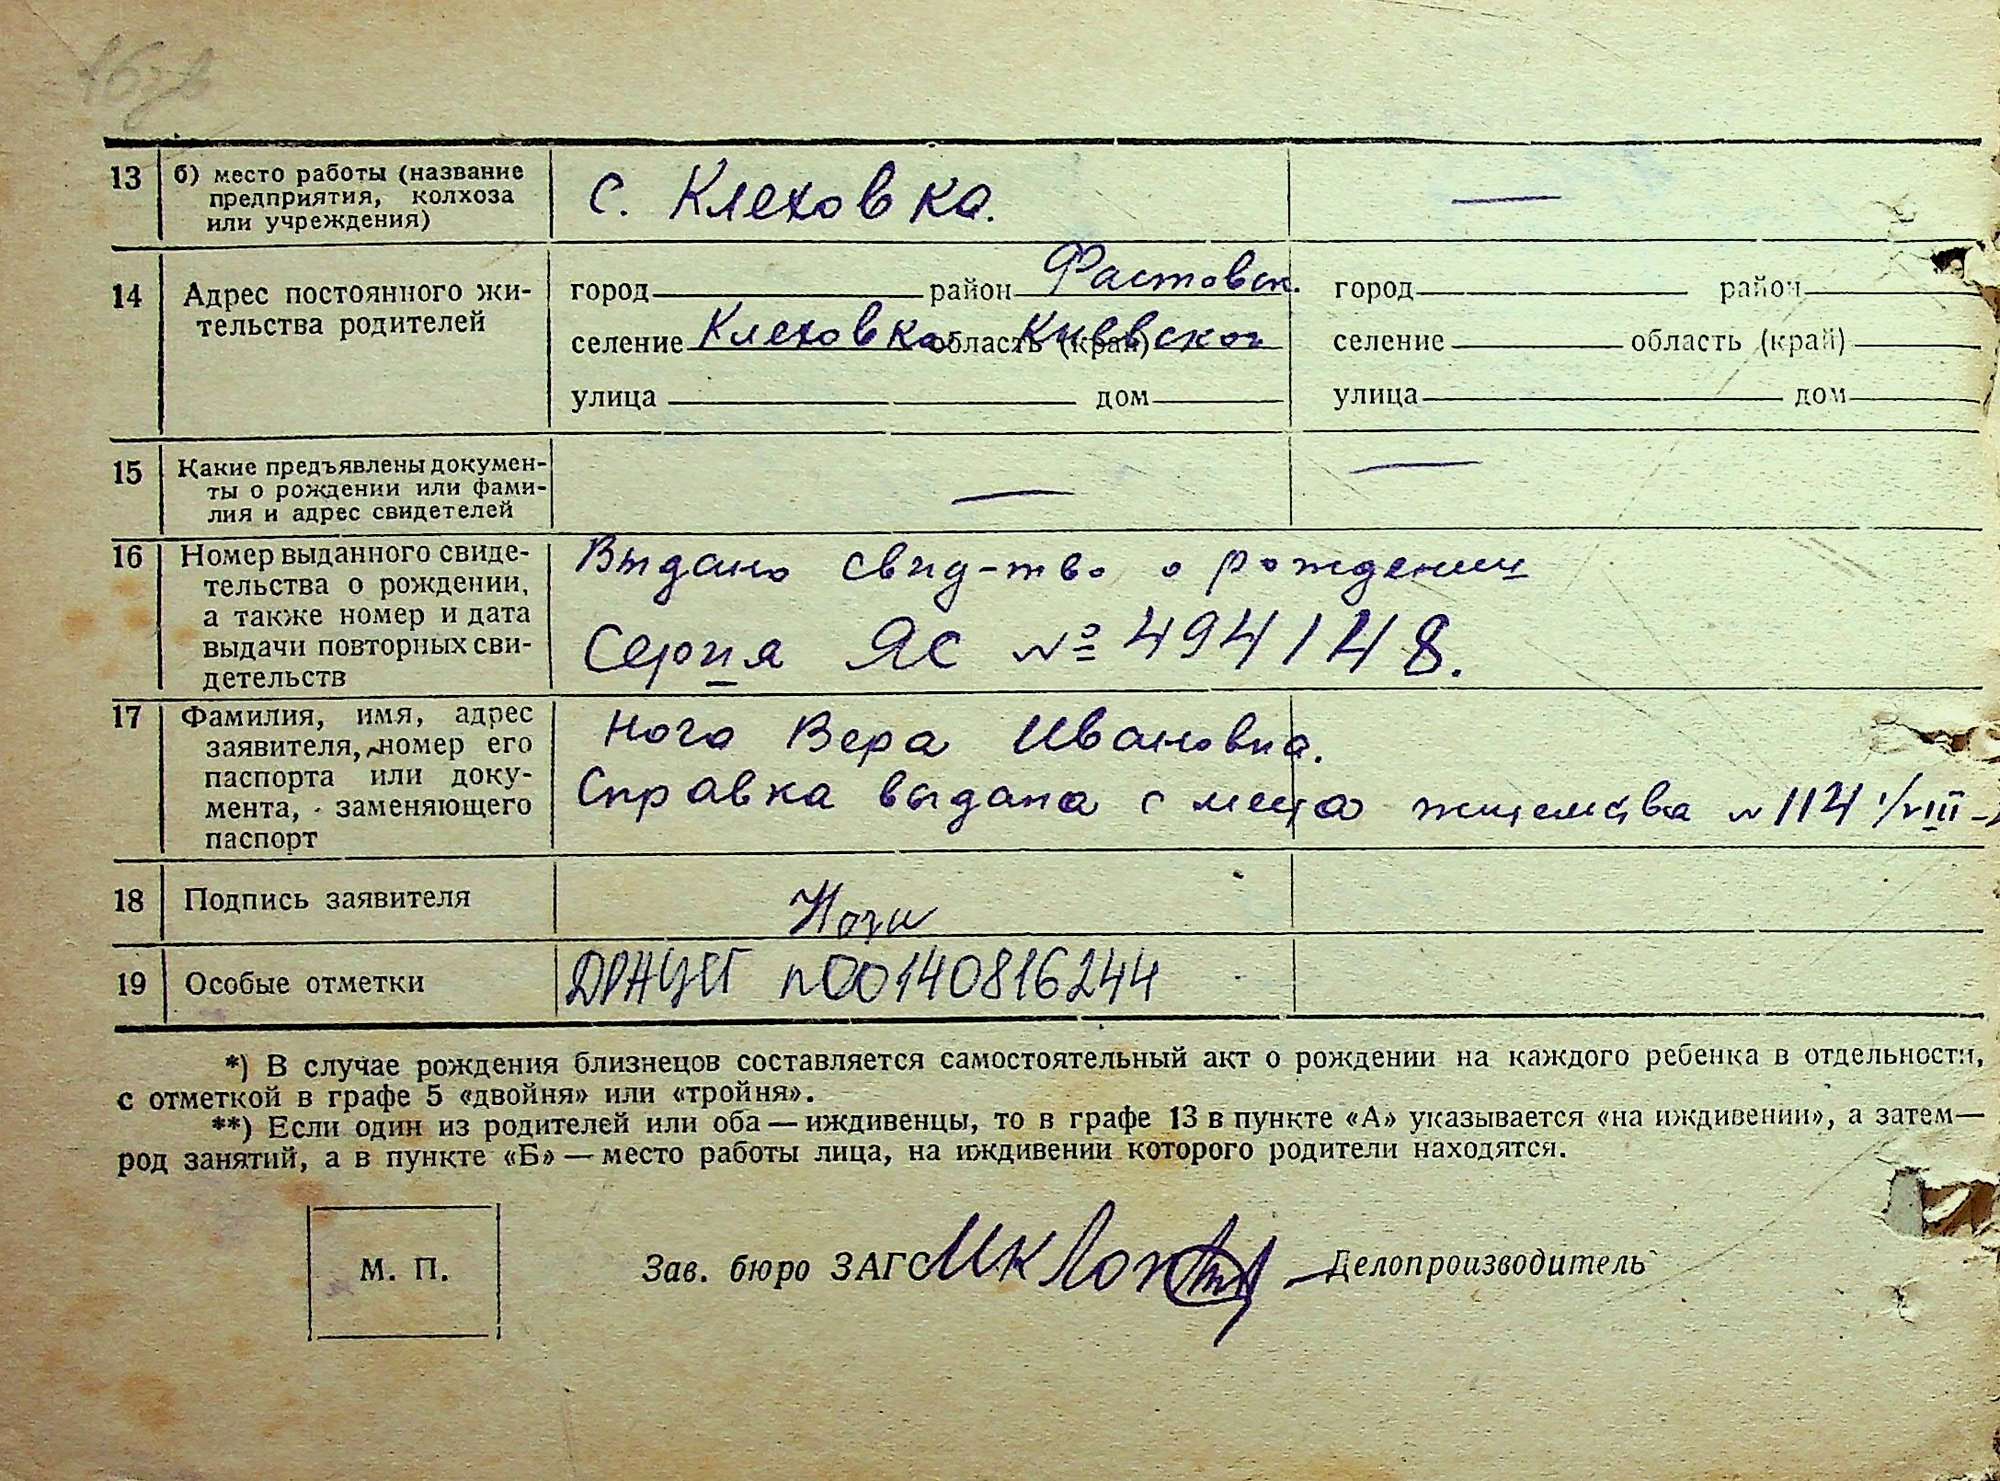 13 б) место работы (название предприятия, колхоза или учреждения) с. Клеховка. —
14 Адрес постоянного жительства родителей
город район Фастовск. город район
селение Клеховка область (край) Киевской селение область (край)
улица дом улица дом
15 Какие предъявлены документы о рождении или фамилия и адрес свидетелей — —
16 Номер выданного свидетельства о рождении, а также номер и дата выдачи повторных свидетельств
Выдано свид-тво о рождении
Серия ЯС № 494148.
17 Фамилия, имя, адрес заявителя, номер его паспорта или документа, заменяющего паспорт
Нога Вера Ивановна.
Справка выдана с места жительства № 114 1/VIII-
18 Подпись заявителя Нога
19 Особые отметки ДРАЦСГ 00140816244
*) В случае рождения близнецов составляется самостоятельный акт о рождении на каждого ребенка в отдельности,
с отметкой в графе 5 «двойня» или «тройня».
**) Если один из родителей или оба — иждивенцы, то в графе 13 в пункте «А» указывается «на иждивении», а затем —
род занятий, а в пункте «Б» — место работы лица, на иждивении которого родители находятся.
М. П. Зав. бюро ЗАГС Делопроизводитель